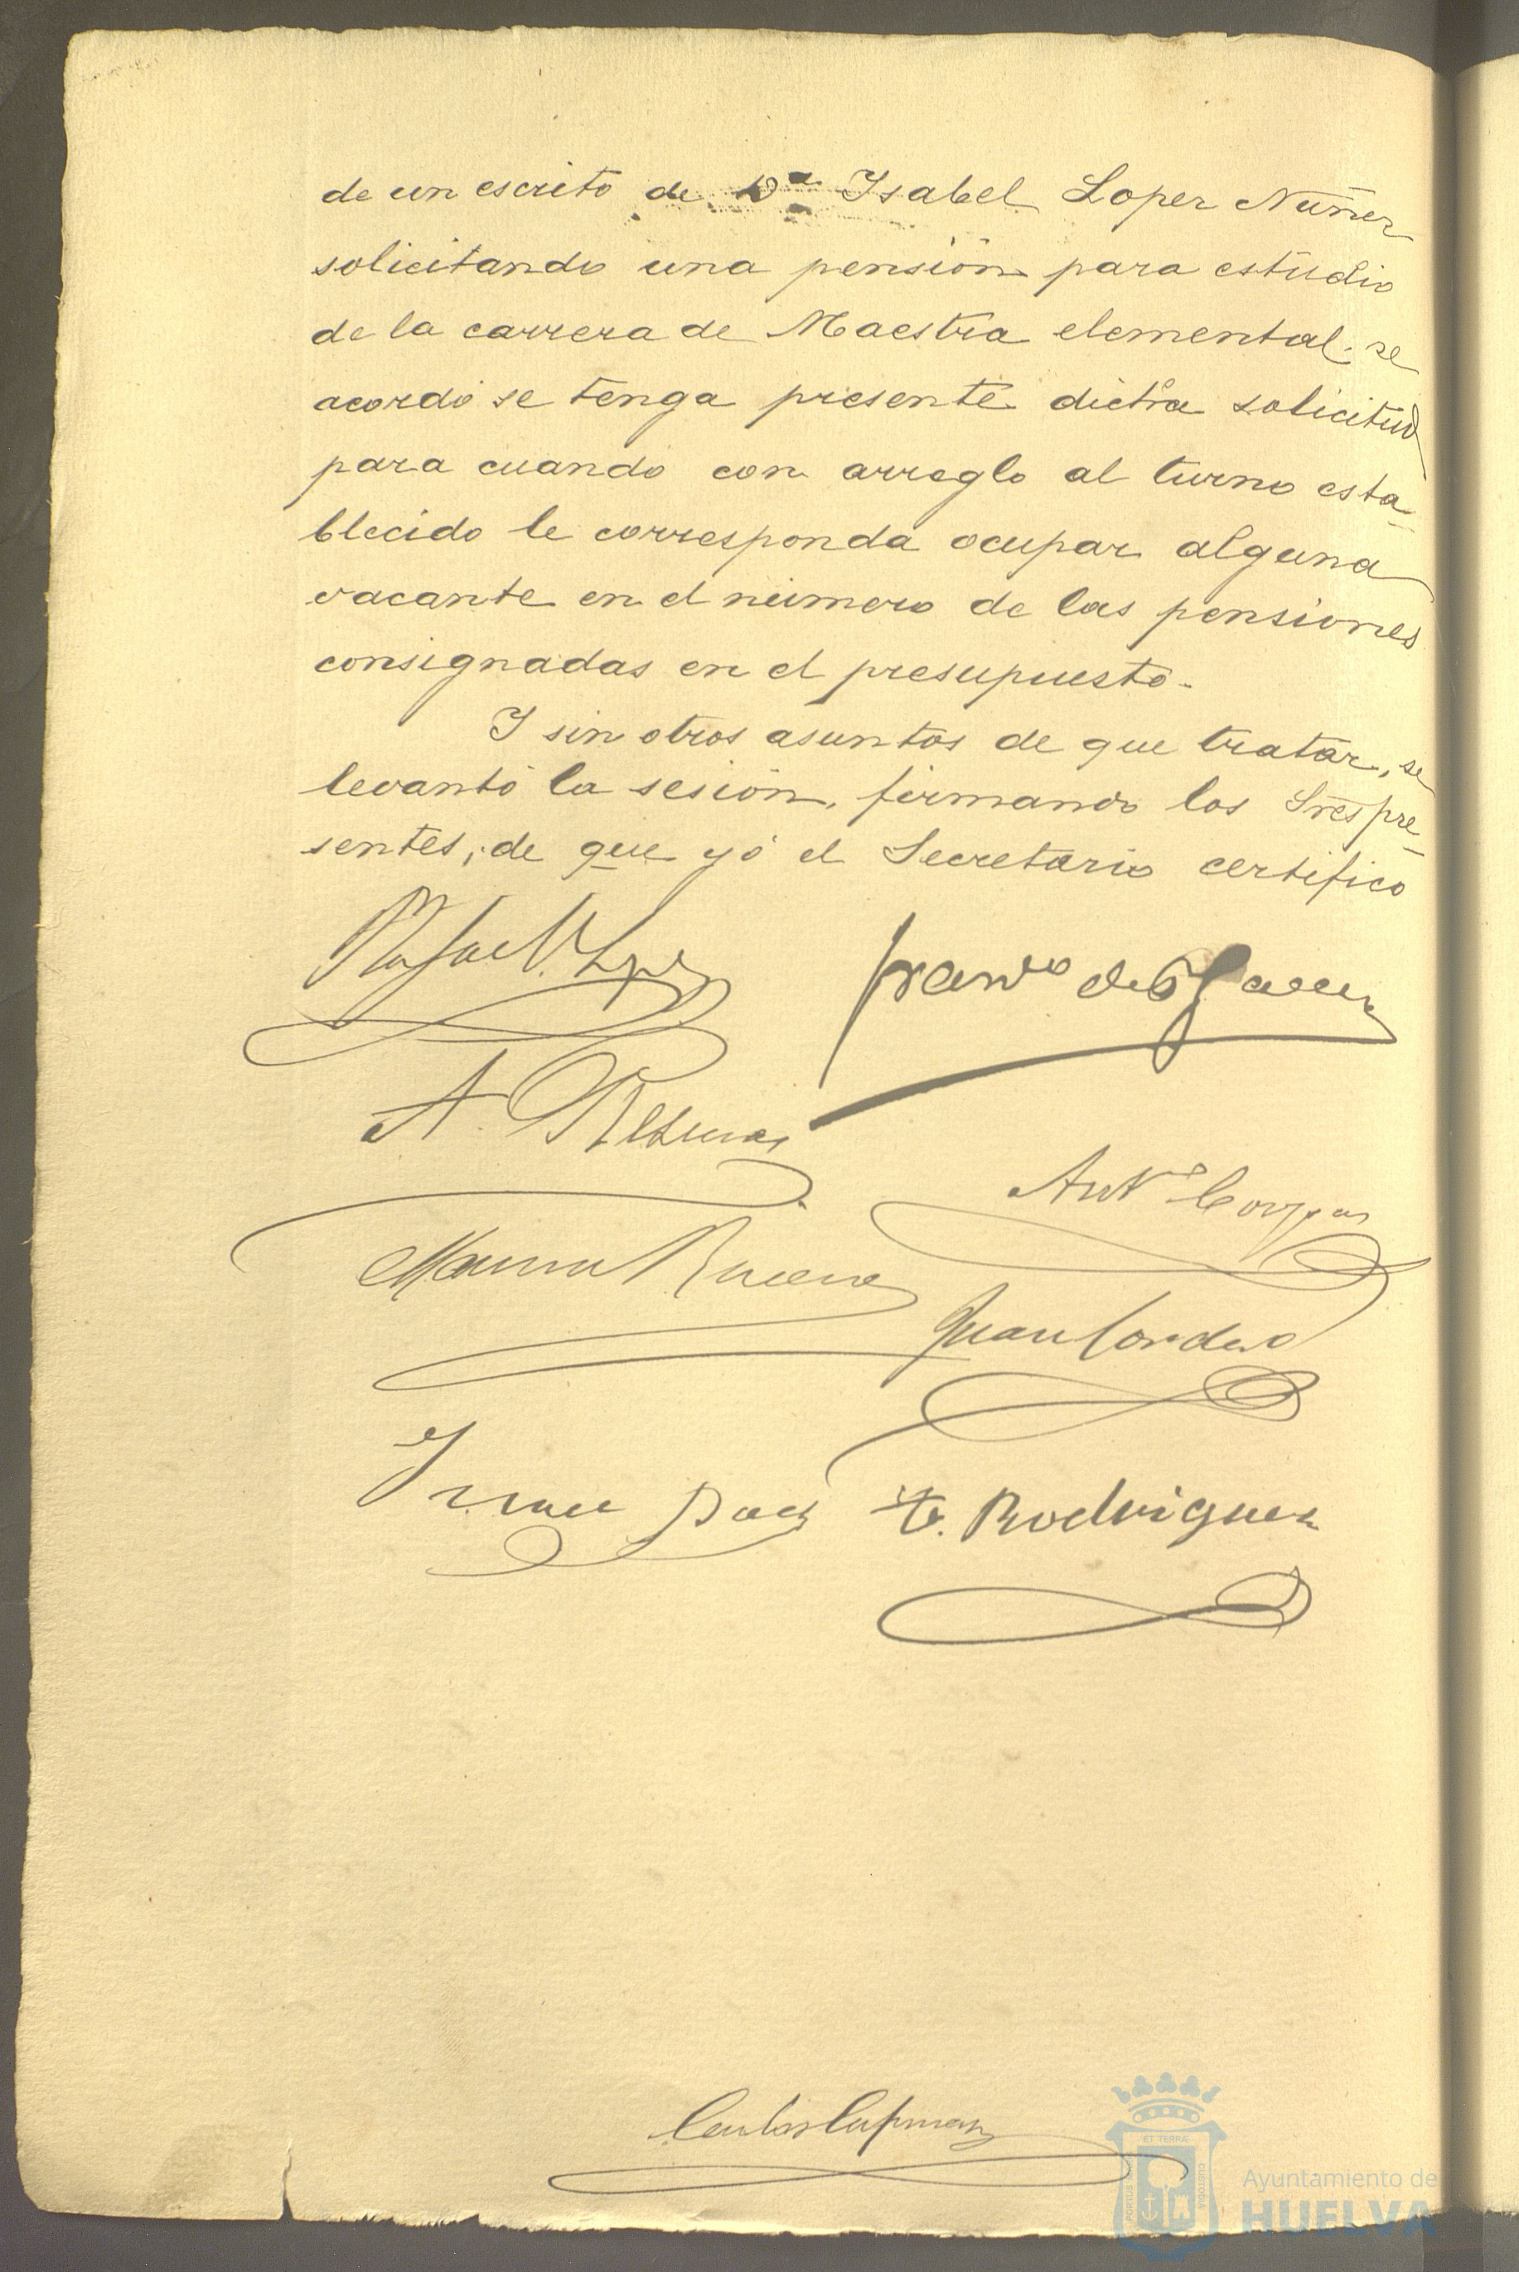 de un escrito de Dª Isabel Lopez Nuñez
solicitando una pensión para estudio
de la carrera de Maestra elemental se
acordó se tenga presente dicha solicitud
para cuando con arreglo al turno esta-
blecido le corresponda ocupar alguna
vacante en el número de las pensiones
consignadas en el presupuesto.
Y sin otros asuntos de que tratar, se
levantó la sesión, firmando los Sres pre-
sentes, de que yó el Secretario certifico
Rafael
Franco de
A.
Antº
Manuel
Juan Cordero
T. Rodriguez
ET TERRÆ
PORTUS
CUSTODIA
Ayuntamiento de
HUELVA